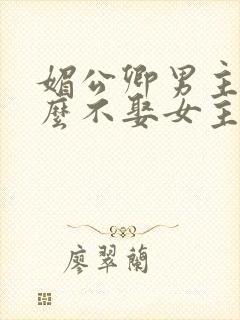 媚公卿男主
麼不娶女主
廖翠蘭